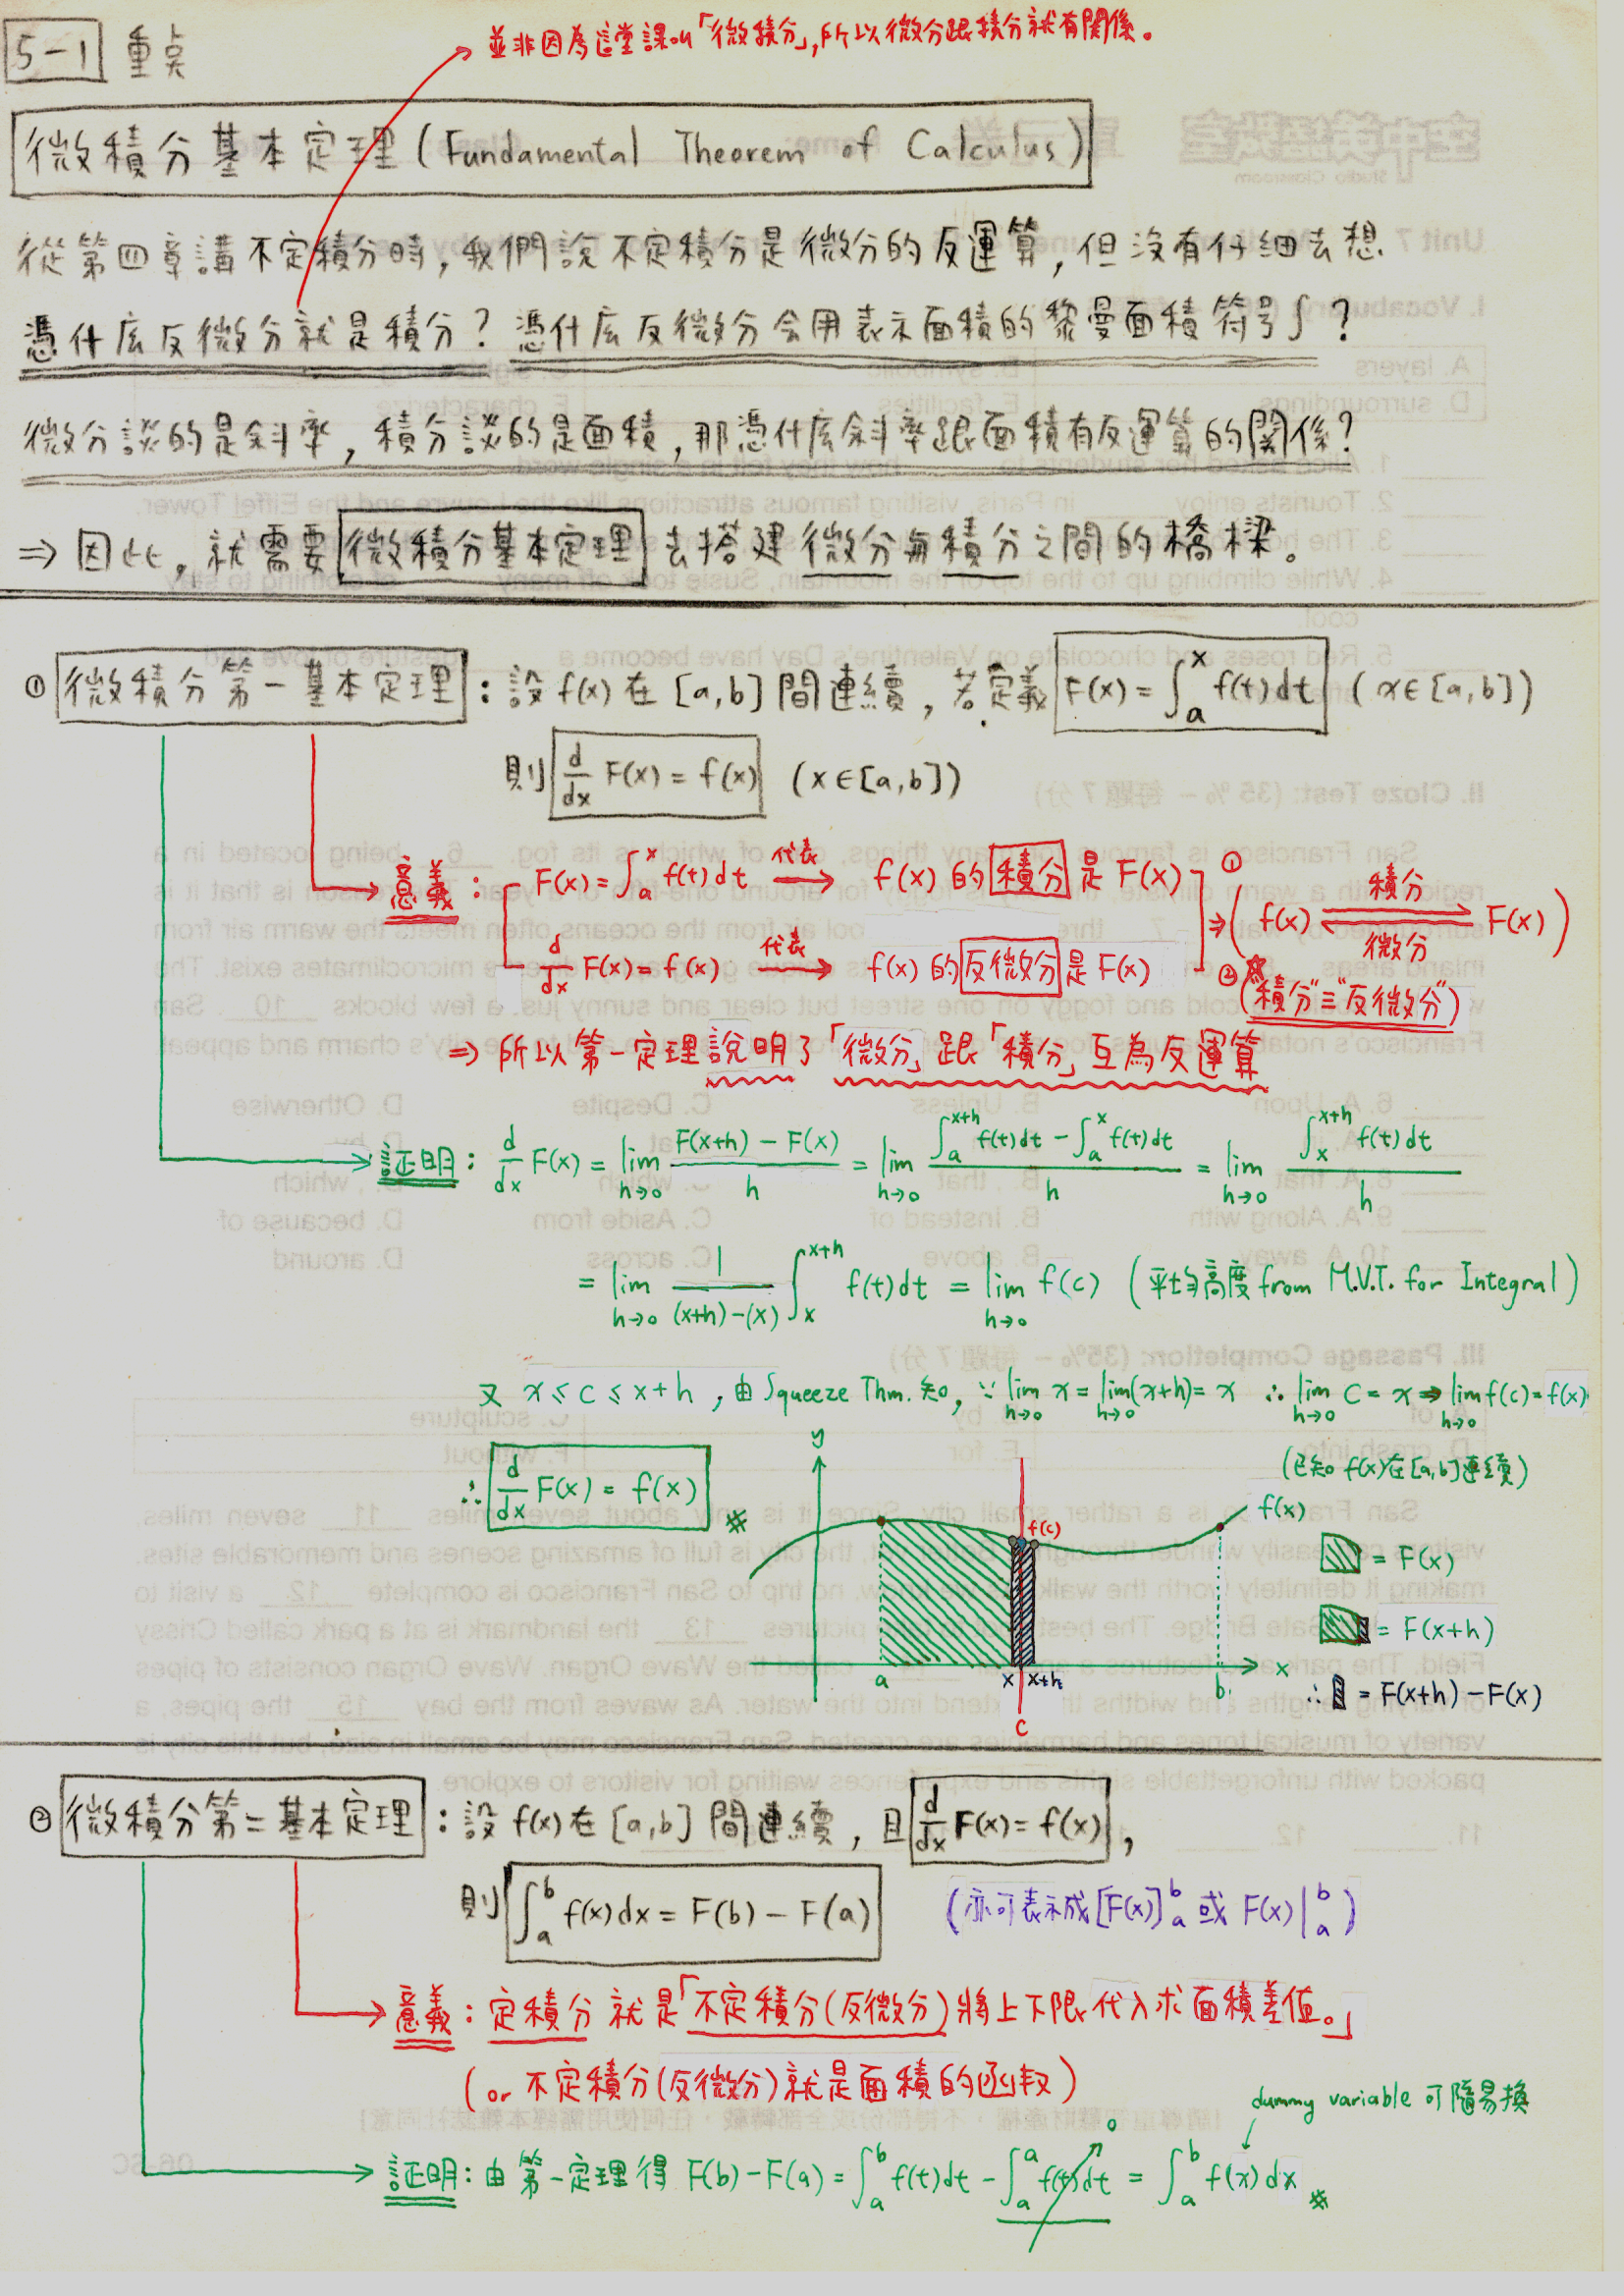 並非因為這堂課叫「微積分」,所以微分跟積分就有關係。
5-1 重点
微積分基本定理 (Fundamental Theorem of Calculus)
從第四章講不定積分時,我們說不定積分是微分的反運算,但沒有仔細去想
憑什広反微分就是積分?憑什広反微分会用表示面積的黎曼面積符号∫?
微分談的是斜率,積分談的是面積,那憑什広斜率跟面積有反運算的關係?
⇒ 因此,就需要微積分基本定理去搭建微分與積分之間的橋樑。
① 微積分第一基本定理:設 f(x) 在 [a,b] 間連續,若定義 F(x) = ∫_a^x f(t)dt (x∈[a,b])
則 d/dx F(x) = f(x) (x∈[a,b])
意義: F(x) = ∫_a^x f(t)dt 代表→ f(x) 的積分是 F(x)
d/dx F(x) = f(x) 代表→ f(x) 的反微分是 F(x)
⇒ ① (f(x) 積分 ⇌ 微分 F(x))
② ("積分"≡"反微分")
⇒ 所以第一定理說明了「微分」跟「積分」互為反運算
証明: d/dx F(x) = lim h→0 (F(x+h) - F(x))/h = lim h→0 (∫_a^{x+h} f(t)dt - ∫_a^x f(t)dt)/h = lim h→0 (∫_x^{x+h} f(t)dt)/h
= lim h→0 1/((x+h)-(x)) ∫_x^{x+h} f(t)dt = lim h→0 f(c) (平均高度 from M.V.T. for Integral)
又 x ≤ c ≤ x+h ,由 Squeeze Thm. 知, ∵ lim h→0 x = lim h→0 (x+h) = x ∴ lim h→0 c = x ⇒ lim h→0 f(c) = f(x)
(已知 f(x) 在 [a,b] 連續)
∴ d/dx F(x) = f(x) #
y
f(c)
f(x)
a
x
x+h
c
b
x
= F(x)
= F(x+h)
∴ = F(x+h) - F(x)
② 微積分第二基本定理:設 f(x) 在 [a,b] 間連續,且 d/dx F(x) = f(x),
則 ∫_a^b f(x)dx = F(b) - F(a) (亦可表示成 [F(x)]_a^b 或 F(x)|_a^b)
意義:定積分就是「不定積分(反微分)將上下限代入求面積差值。」
(or 不定積分(反微分)就是面積的函數)
dummy variable 可隨易換
証明:由第一定理得 F(b) - F(a) = ∫_a^b f(t)dt - ∫_a^a f(t)dt 0 = ∫_a^b f(x)dx #